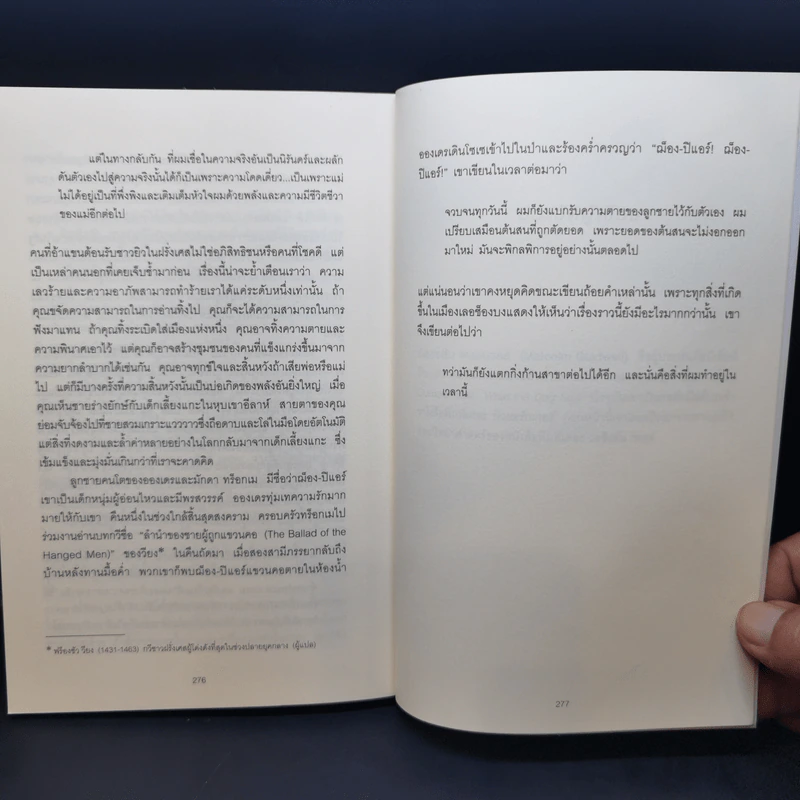 แต่ในทางกลับกัน ที่ผมเชื่อในความจริงอันเป็นนิรันดร์และผลัก
ดันตัวเองไปสู่ความจริงนั้นได้ก็เป็นเพราะความโดดเดี่ยว...เป็นเพราะแม่
ไม่ได้อยู่เป็นที่พึ่งพิงและเติมเต็มหัวใจผมด้วยพลังและความมีชีวิตชีวา
ของแม่อีกต่อไป
คนที่อ้าแขนต้อนรับชาวยิวในฝรั่งเศสไม่ใช่อภิสิทธิชนหรือคนที่โชคดี แต่
เป็นเหล่าคนนอกที่เคยเจ็บช้ำมาก่อน เรื่องนี้น่าจะย้ำเตือนเราว่า ความ
เลวร้ายและความอาภัพสามารถทำร้ายเราได้แค่ระดับหนึ่งเท่านั้น ถ้า
คุณขจัดความสามารถในการอ่านทิ้งไป คุณก็จะได้ความสามารถในการ
ฟังมาแทน ถ้าคุณทิ้งระเบิดใส่เมืองแห่งหนึ่ง คุณอาจทิ้งความตายและ
ความพินาศเอาไว้ แต่คุณก็อาจสร้างชุมชนของคนที่แข็งแกร่งขึ้นมาจาก
ความยากลำบากได้เช่นกัน คุณอาจทุกข์ใจและสิ้นหวังถ้าเสียพ่อหรือแม่
ไป แต่ก็มีบางครั้งที่ความสิ้นหวังนั้นเป็นบ่อเกิดของพลังอันยิ่งใหญ่ เมื่อ
คุณเห็นชายร่างยักษ์กับเด็กเลี้ยงแกะในหุบเขาอีลาห์ สายตาของคุณ
ย่อมจับจ้องไปที่ชายสวมเกราะแวววาวซึ่งถือดาบและโล่ในมือโดยอัตโนมัติ
แต่สิ่งที่งดงามและล้ำค่าหลายอย่างในโลกกลับมาจากเด็กเลี้ยงแกะ ซึ่ง
เข้มแข็งและมุ่งมั่นเกินกว่าที่เราจะคาดคิด
ลูกชายคนโตของอองเดรและมักดา ทร็อกเม มีชื่อว่าฌ็อง-ปิแอร์
เขาเป็นเด็กหนุ่มผู้อ่อนไหวและมีพรสวรรค์ อองเดรทุ่มเทความรักมาก
มายให้กับเขา คืนหนึ่งในช่วงใกล้สิ้นสุดสงคราม ครอบครัวทร็อกเมไป
ร่วมงานอ่านบทกวีชื่อ "ลำนำของชายผู้ถูกแขวนคอ (The Ballad of the
Hanged Men)" ของวียง* ในคืนถัดมา เมื่อสองสามีภรรยากลับถึง
บ้านหลังทานมื้อค่ำ พวกเขาก็พบฌ็อง-ปิแอร์แขวนคอตายในห้องน้ำ
* ฟรองซัว วียง (1431-1463) กวีชาวฝรั่งเศสผู้โด่งดังที่สุดในช่วงปลายยุคกลาง (ผู้แปล)
276
อองเดรเดินโซเซเข้าไปในป่าและร้องคร่ำครวญว่า "ฌ็อง-ปิแอร์! ฌ็อง-
ปิแอร์!" เขาเขียนในเวลาต่อมาว่า
จวบจนทุกวันนี้ ผมก็ยังแบกรับความตายของลูกชายไว้กับตัวเอง ผม
เปรียบเสมือนต้นสนที่ถูกตัดยอด เพราะยอดของต้นสนจะไม่งอกออก
มาใหม่ มันจะพิกลพิการอยู่อย่างนั้นตลอดไป
แต่แน่นอนว่าเขาคงหยุดคิดขณะเขียนถ้อยคำเหล่านั้น เพราะทุกสิ่งที่เกิด
ขึ้นในเมืองเลอช็องบงแสดงให้เห็นว่าเรื่องราวนี้ยังมีอะไรมากกว่านั้น เขา
จึงเขียนต่อไปว่า
ทว่ามันก็ยังแตกกิ่งก้านสาขาต่อไปได้อีก และนั่นคือสิ่งที่ผมทำอยู่ใน
เวลานี้
277